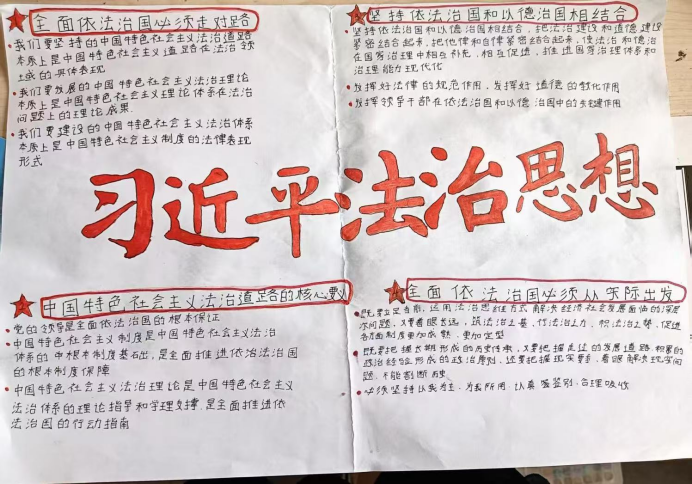 全面依法治国必须走对路
我们要坚持的中国特色社会主义法治道路
本质上是中国特色社会主义道路在法治领
域的具体表现
我们要发展的中国特色社会主义法治理论
本质上是中国特色社会主义理论体系在法治
问题上的理论成果
我们要建设的中国特色社会主义法治体系
本质上是中国特色社会主义制度的法律表现
形式
坚持依法治国和以德治国相结合
坚持依法治国和以德治国相结合，把法治建设和道德建设
紧密结合起来，把他律和自律紧密结合起来，使法治和德治
在国家治理中相互补充，相互促进，推进国家治理体系和
治理能力现代化
发挥好法律的规范作用，发挥好道德的教化作用
发挥领导干部在依法治国和以德治国中的关键作用
习近平法治思想
中国特色社会主义法治道路的核心要义
党的领导是全面依法治国的根本保证
中国特色社会主义制度是中国特色社会主义法治
体系的根本制度基础，是全面推进依法治国
的根本制度保障
中国特色社会主义法治理论是中国特色社会主义
法治体系的理论指导和学理支撑，是全面推进依
法治国的行动指南
全面依法治国必须从实际出发
既要立足当前，运用法治思维方式解决经济社会发展面临的深层
次问题，又要着眼长远，筑法治之基，行法治之力，积法治之势，促进
各方面制度更加成熟，更加定型
既要把握长期形成的历史传承，又要把握走过的发展道路，积累的
政治经验形成的政治原则，还要把握现实要求，着眼解决现实问
题，不能割断历史
必须坚持以我为主，为我所用，认真鉴别，合理吸收